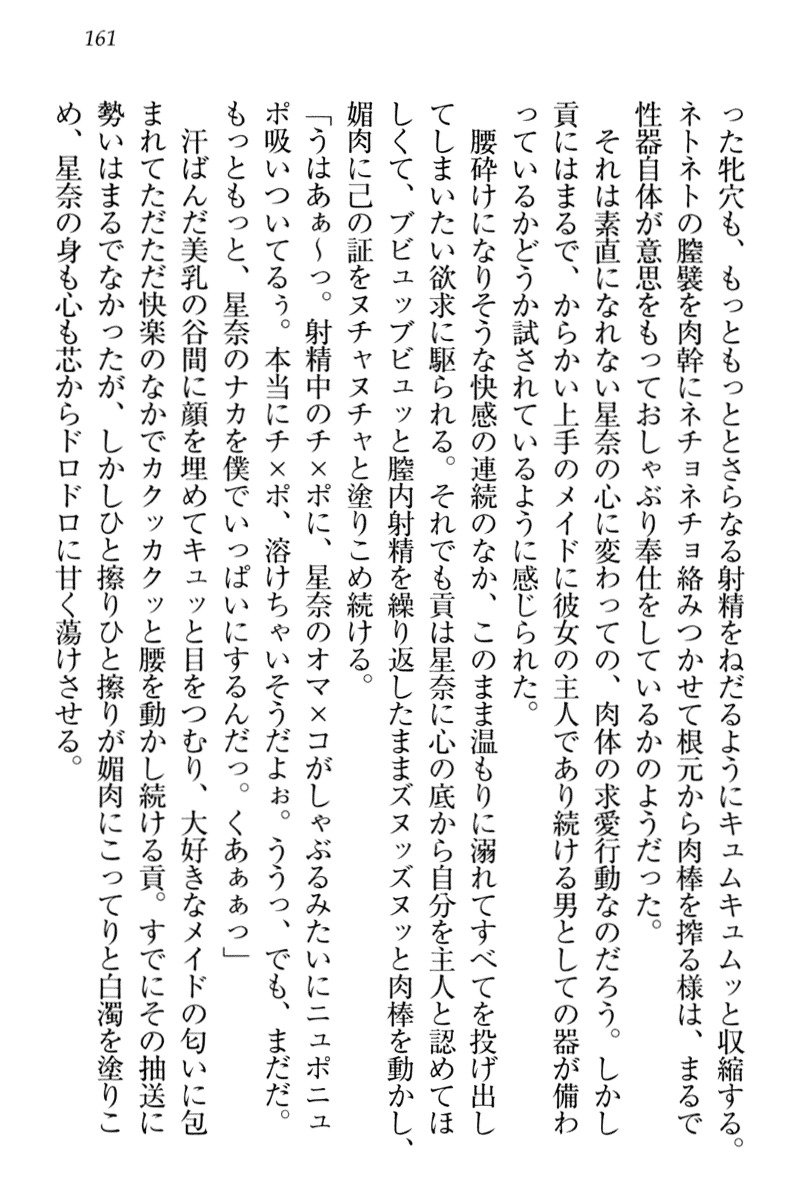 161
った牝穴も、もっともっととさらなる射精をねだるようにキュムキュムッと収縮する。
ネトネトの膣襞を肉幹にネチョネチョ絡みつかせて根元から肉棒を搾る様は、まるで
性器自体が意思をもっておしゃぶり奉仕をしているかのようだった。
それは素直になれない星奈の心に変わっての、肉体の求愛行動なのだろう。しかし
貢にはまるで、からかい上手のメイドに彼女の主人であり続ける男としての器が備わ
っているかどうか試されているように感じられた。
腰砕けになりそうな快感の連続のなか、このまま温もりに溺れてすべてを投げ出し
てしまいたい欲求に駆られる。それでも貢は星奈に心の底から自分を主人と認めてほ
しくて、ブビュッブビュッと膣内射精を繰り返したままズヌッズヌッと肉棒を動かし、
媚肉に己の証をヌチャヌチャと塗りこめ続ける。
「うはあぁ～っ。射精中のチ×ポに、星奈のオマ×コがしゃぶるみたいにニュポニュ
ポ吸いついてるぅ。本当にチ×ポ、溶けちゃいそうだよぉ。ううっ、でも、まだだ。
もっともっと、星奈のナカを僕でいっぱいにするんだっ。くあぁぁっ」
汗ばんだ美乳の谷間に顔を埋めてキュッと目をつむり、大好きなメイドの匂いに包
まれてただただ快楽のなかでカクッカクッと腰を動かし続ける貢。すでにその抽送に
勢いはまるでなかったが、しかしひと擦りひと擦りが媚肉にこってりと白濁を塗りこ
め、星奈の身も心も芯からドロドロに甘く蕩けさせる。